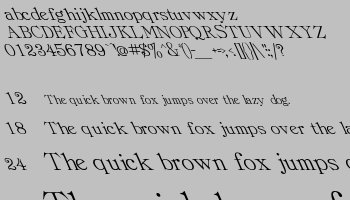 abcdefghijklmnopqrstuvwxyz
ABCDEFGHIJKLMNOPQRSTUVWXYZ
0123456789
12 The quick brown fox jumps over the lazy dog.
18 The quick brown fox jumps over the
24 The quick brown fox jumps